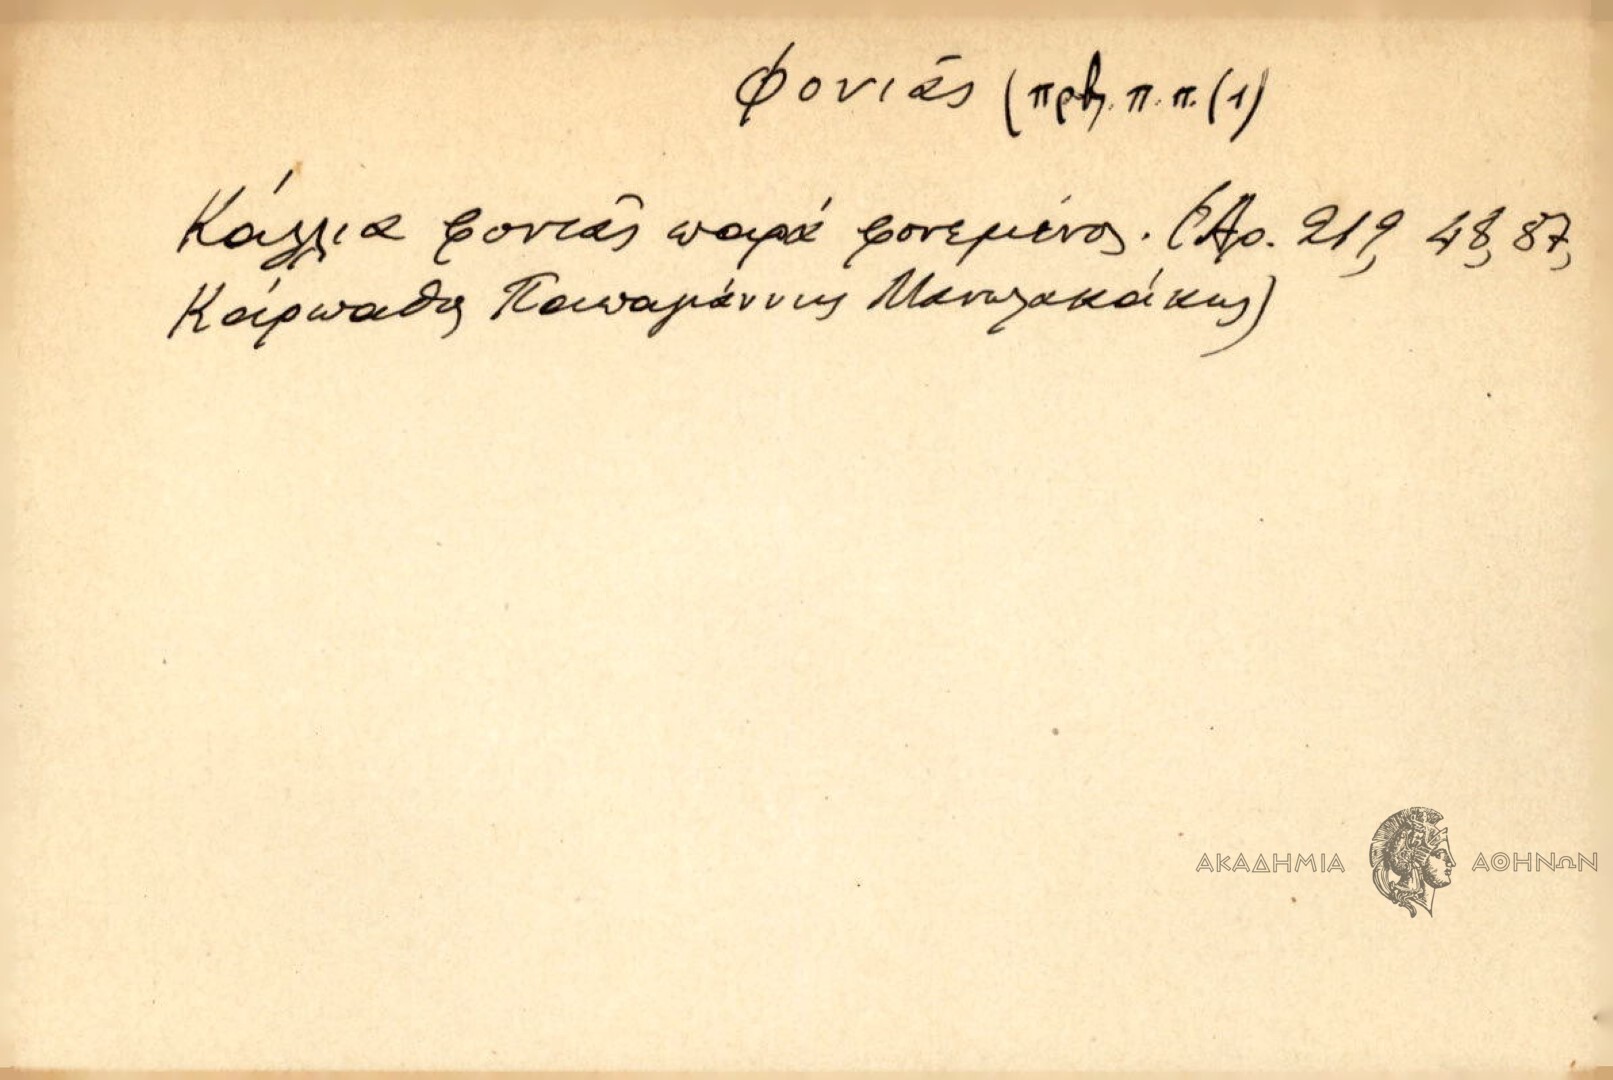 Φονιᾶς (πρβ. π. π. (1)
Κάλλια φονιᾶς παρά φονεμένος. (Ἀρ. 219, 48, 87,
Κάρπαθος Παπαγιάννης Μανωλακάκης)
ΑΚΑΔΗΜΙΑ ΑΘΗΝΩΝ